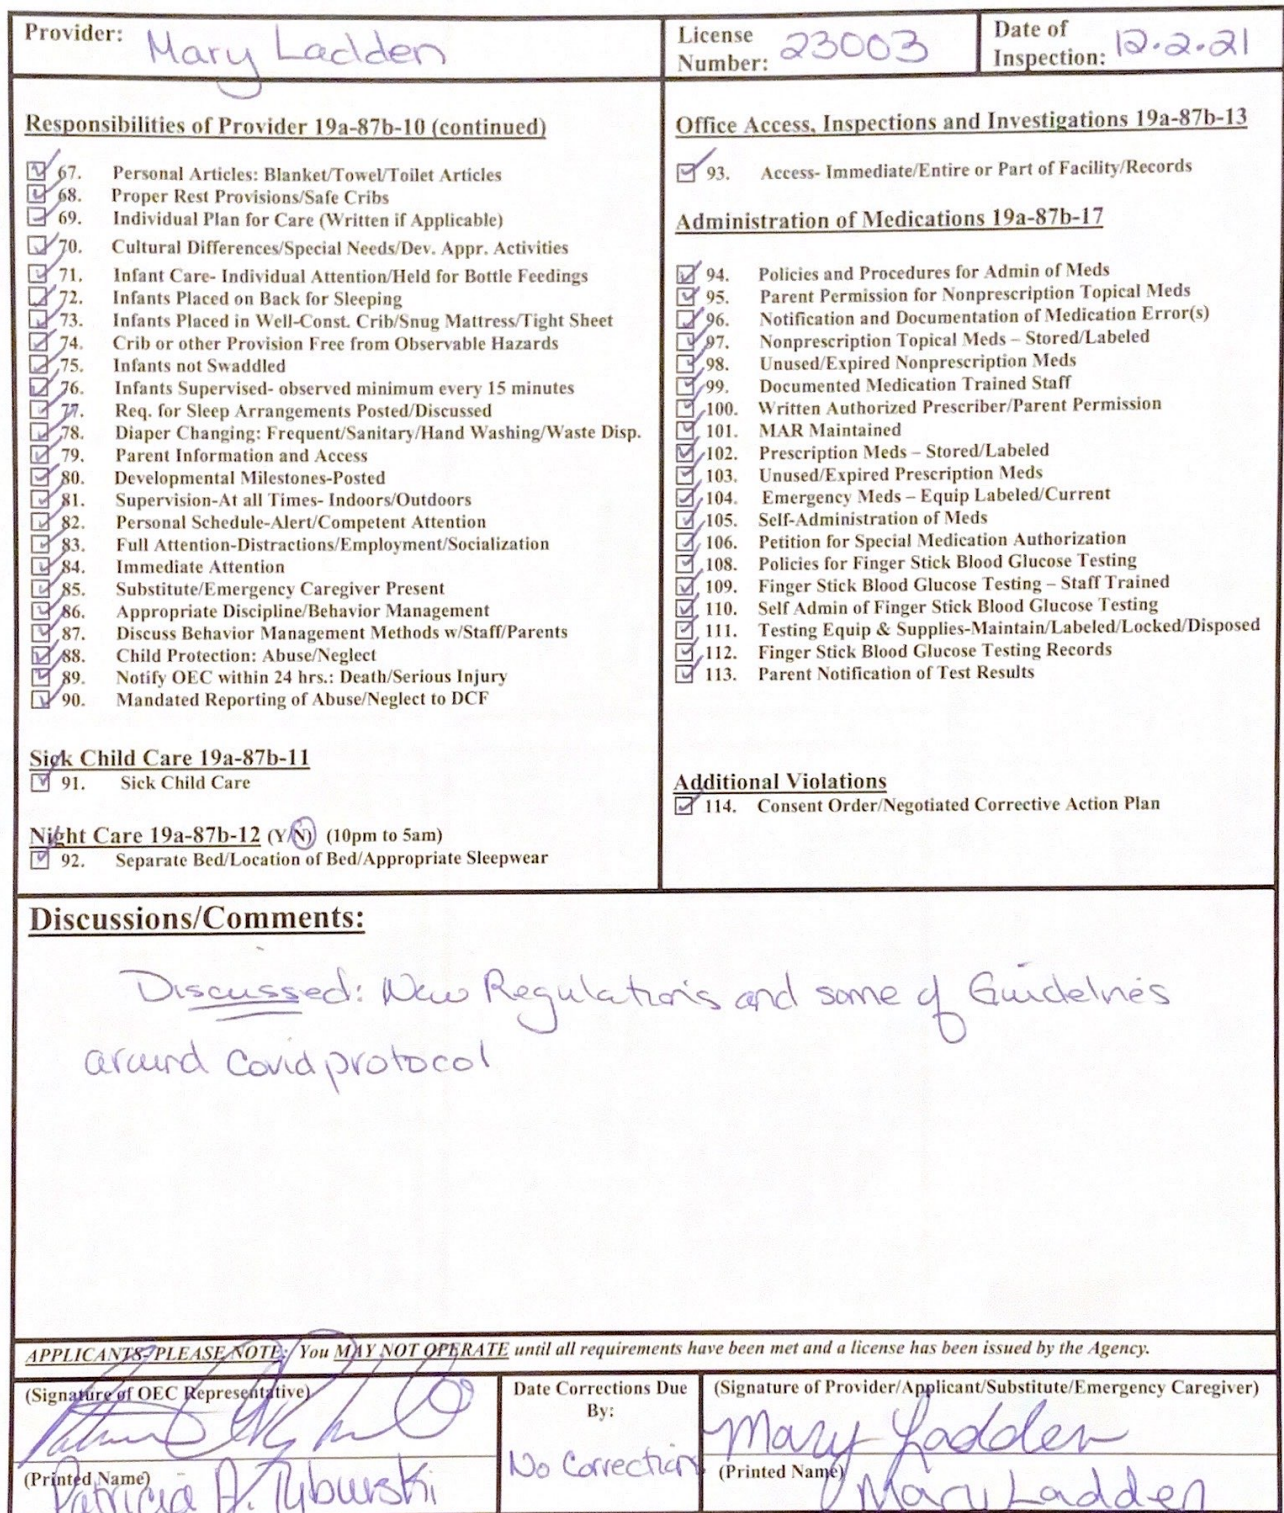 Provider: Mary Ladden
License Number: 23003
Date of Inspection: 12.2.21
Responsibilities of Provider 19a-87b-10 (continued)
67. Personal Articles: Blanket/Towel/Toilet Articles
68. Proper Rest Provisions/Safe Cribs
69. Individual Plan for Care (Written if Applicable)
70. Cultural Differences/Special Needs/Dev. Appr. Activities
71. Infant Care- Individual Attention/Held for Bottle Feedings
72. Infants Placed on Back for Sleeping
73. Infants Placed in Well-Const. Crib/Snug Mattress/Tight Sheet
74. Crib or other Provision Free from Observable Hazards
75. Infants not Swaddled
76. Infants Supervised- observed minimum every 15 minutes
77. Req. for Sleep Arrangements Posted/Discussed
78. Diaper Changing: Frequent/Sanitary/Hand Washing/Waste Disp.
79. Parent Information and Access
80. Developmental Milestones-Posted
81. Supervision-At all Times- Indoors/Outdoors
82. Personal Schedule-Alert/Competent Attention
83. Full Attention-Distractions/Employment/Socialization
84. Immediate Attention
85. Substitute/Emergency Caregiver Present
86. Appropriate Discipline/Behavior Management
87. Discuss Behavior Management Methods w/Staff/Parents
88. Child Protection: Abuse/Neglect
89. Notify OEC within 24 hrs.: Death/Serious Injury
90. Mandated Reporting of Abuse/Neglect to DCF
Sick Child Care 19a-87b-11
91. Sick Child Care
Night Care 19a-87b-12 (Y/N) (10pm to 5am)
92. Separate Bed/Location of Bed/Appropriate Sleepwear
Office Access, Inspections and Investigations 19a-87b-13
93. Access- Immediate/Entire or Part of Facility/Records
Administration of Medications 19a-87b-17
94. Policies and Procedures for Admin of Meds
95. Parent Permission for Nonprescription Topical Meds
96. Notification and Documentation of Medication Error(s)
97. Nonprescription Topical Meds – Stored/Labeled
98. Unused/Expired Nonprescription Meds
99. Documented Medication Trained Staff
100. Written Authorized Prescriber/Parent Permission
101. MAR Maintained
102. Prescription Meds – Stored/Labeled
103. Unused/Expired Prescription Meds
104. Emergency Meds – Equip Labeled/Current
105. Self-Administration of Meds
106. Petition for Special Medication Authorization
108. Policies for Finger Stick Blood Glucose Testing
109. Finger Stick Blood Glucose Testing – Staff Trained
110. Self Admin of Finger Stick Blood Glucose Testing
111. Testing Equip & Supplies-Maintain/Labeled/Locked/Disposed
112. Finger Stick Blood Glucose Testing Records
113. Parent Notification of Test Results
Additional Violations
114. Consent Order/Negotiated Corrective Action Plan
Discussions/Comments:
Discussed: New Regulations and some of Guidelines
around Covid protocol
APPLICANTS-PLEASE NOTE: You MAY NOT OPERATE until all requirements have been met and a license has been issued by the Agency.
(Signature of OEC Representative)
(Printed Name)
Patricia A. Tyburski
Date Corrections Due
By:
No Correction
(Signature of Provider/Applicant/Substitute/Emergency Caregiver)
Mary Ladden
(Printed Name)
Mary Ladden